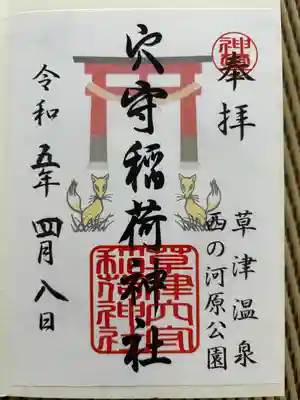 奉拝
神宮
草津温泉
西の河原公園
穴守稲荷神社
草津穴守
稲荷神社
令和五年四月八日